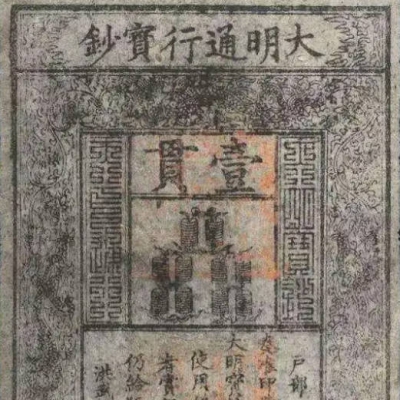 大明通行寶鈔
壹貫
大明寶鈔
天下通行
戶部
奏准印
大明寶
使用
者賞
仍給
洪武